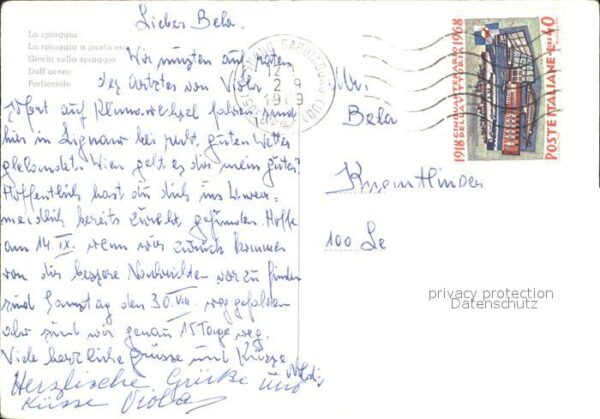 Lieber Bela.
La spiaggia
La spiaggia a punta est
Giochi sulla spiaggia
Dall'aereo
Porticciolo
Wir mussten auf raten
des Arztes von Viola
sofort auf Klimawechsel fahren, sind
hier in Lignano bei sehr guten Wetter
gelandet. Wien geht es dir mein guter?
Hoffentlich hast du dich ins Unver-
meidlich bereits zurecht gefunden. Hoffe
am 14.IX. wenn wir zurück kommen
von dir bessere Nachrichten vor zu finden
sind Samstag den 30.VIII. weggefahren
also sind wir genau 15 Tage weg.
Viele herzliche Grüsse und Küsse
Herzlische Grüße und
Küsse Viola
LIGNANO SABBIADORO (UD)
12
2 9
1969
1918 SECONDA VITTORIA 1968
POSTE ITALIANE LIRE 40
Bela
100 Le
privacy protection
Datenschutz